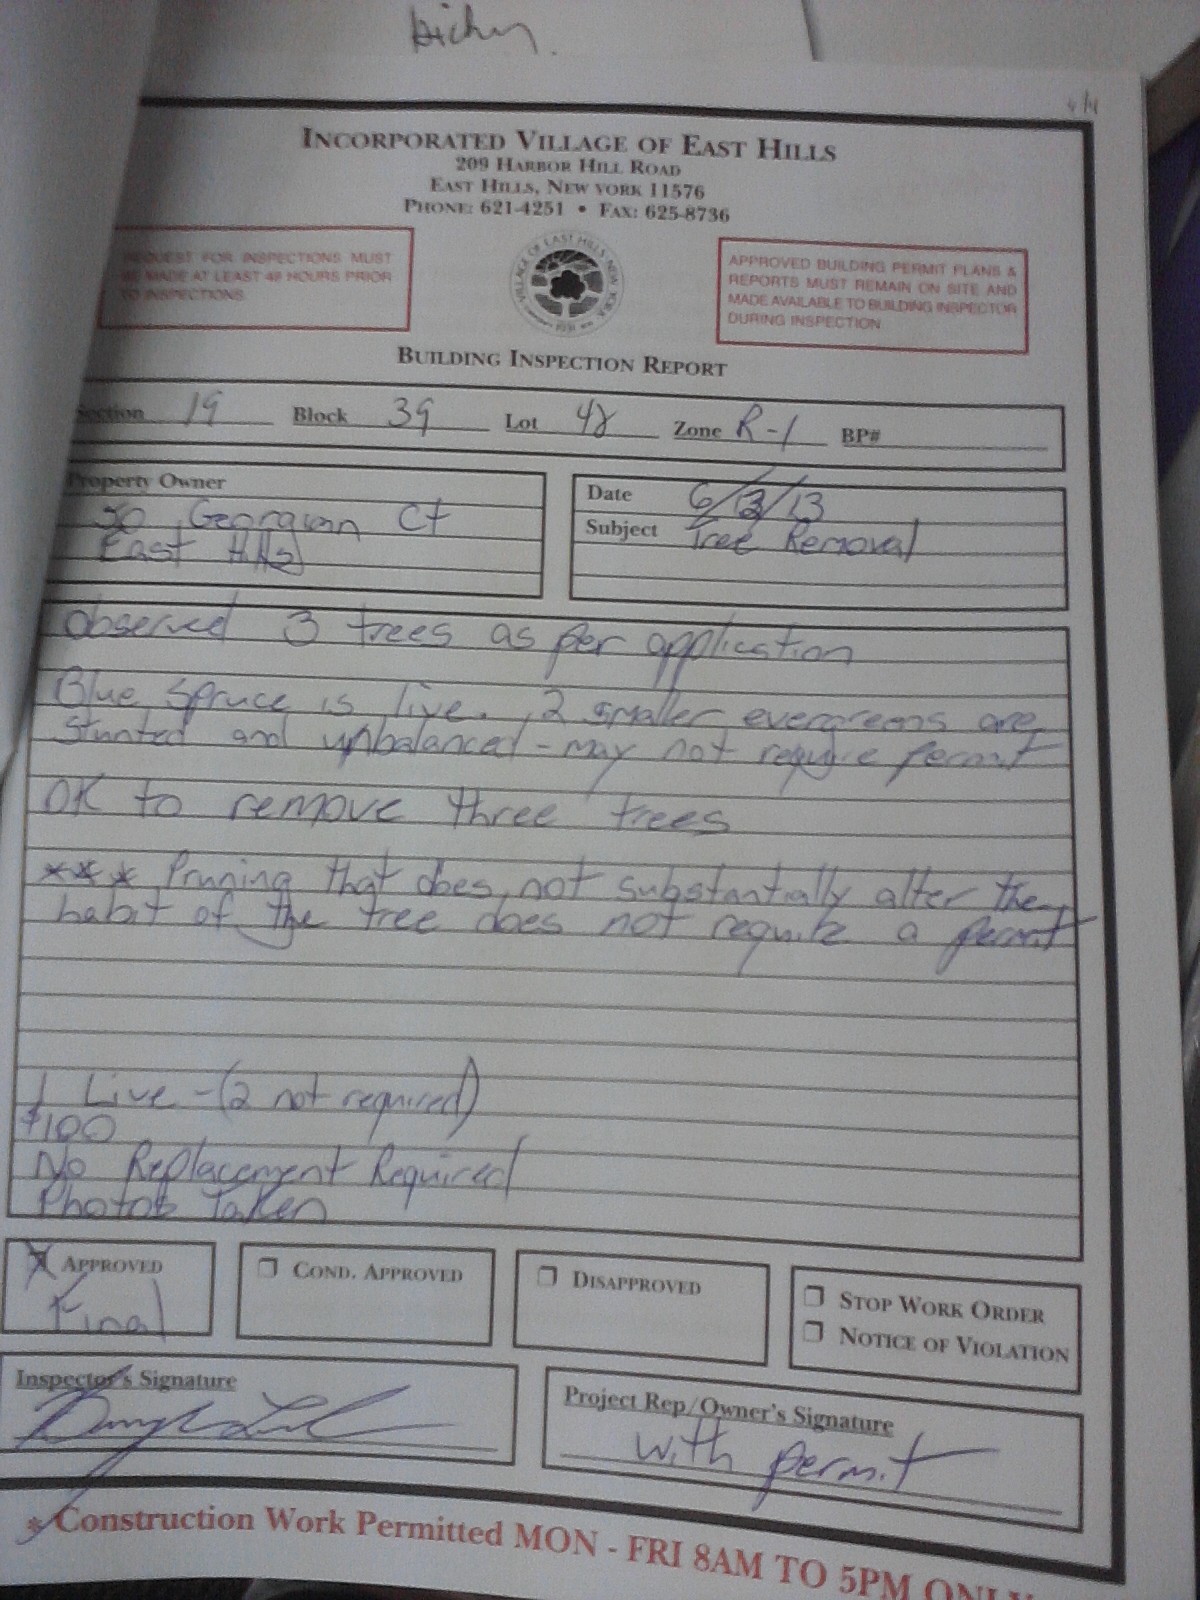 INCORPORATED VILLAGE OF EAST HILLS
209 HARBOR HILL ROAD
EAST HILLS, NEW YORK 11576
PHONE: 621-4251 • FAX: 625-8736
REQUEST FOR INSPECTIONS MUST
BE MADE AT LEAST 48 HOURS PRIOR
TO INSPECTIONS.
VILLAGE OF EAST HILLS NEW YORK
1931
APPROVED BUILDING PERMIT PLANS &
REPORTS MUST REMAIN ON SITE AND
MADE AVAILABLE TO BUILDING INSPECTOR
DURING INSPECTION
BUILDING INSPECTION REPORT
Section 19 Block 39 Lot 42 Zone R-1 BP#
Property Owner
50 Georgian Ct
East Hills
Date 6/3/13
Subject Tree Removal
Observed 3 trees as per application
Blue Spruce is live. 2 smaller evergreens are
stunted and unbalanced - may not require permit
OK to remove three trees
*** Pruning that does not substantially alter the
habit of the tree does not require a permit
1 Live - (2 not required)
$100
No Replacement Required
Photos Taken
APPROVED
Final
COND. APPROVED
DISAPPROVED
STOP WORK ORDER
NOTICE OF VIOLATION
Inspector's Signature
Project Rep/Owner's Signature
with permit
*Construction Work Permitted MON - FRI 8AM TO 5PM ONLY